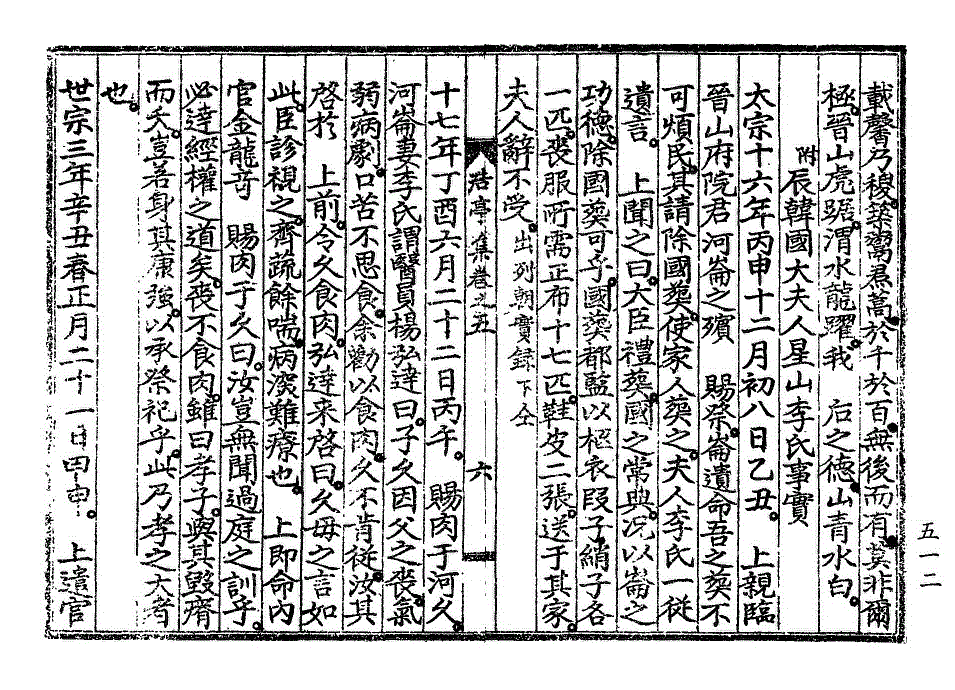 載馨乃稷築鬻焄蒿於千於百無後而有莫非爾
極晉山虎踞渭水龍躍我 后之德山青水白
附 辰韓國大夫人星山李氏事實
太宗十六年丙申十二月初八日乙丑 上親臨
晉山府院君河崙之殯 賜祭崙遺命吾之葬不
可煩民其請除國葬使家人葬之夫人李氏一從
遺言 上聞之曰大臣禮葬國之常典況以崙之
功德除國葬可乎國葬都監以極衣段子綃子各
一匹喪服所需正布十七匹鞋皮二張送于其家
夫人辭不受 出列朝實録下仝
浩亭集卷之五 六
十七年丁酉六月二十二日丙午 賜肉于河久
河崙妻李氏謂醫員楊弘達曰子久因父之喪氣
弱病劇口苦不思食余勸以食肉久不肯從汝其
啓於 上前令久食肉弘達来啓曰久母之言如
此臣診視之齊蔬餘喘病深難療也 上即命內
官金龍竒 賜肉于久曰汝豈無聞過庭之訓乎
必達經權之道矣喪不食肉雖曰孝子與其毀瘠
而夭豈若身其康強以承祭祀乎此乃孝之大者
也
世宗三年辛丑春正月二十一日甲申 上遣官
五一二